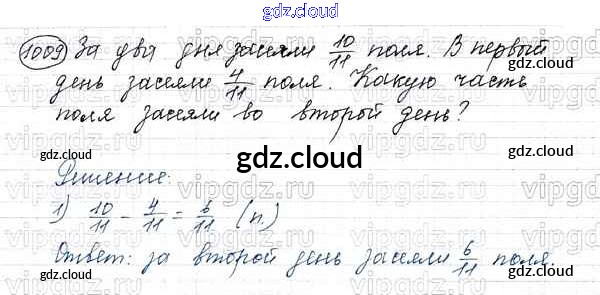 gdz.cloud
1009 За два дня засеяли 10/11 поля. В первый
день засеяли 4/11 поля. Какую часть
поля засеяли во второй день?
gdz.cloud gdz.cloud
gdz.cloud
Решение:
vipgdz.ru vipgdz.ru vipgdz.ru
1) 10/11 - 4/11 = 6/11 (п.)
gdz.cloud gdz.cloud
Ответ: за второй день засеяли 6/11 поля.
gdz.cloud